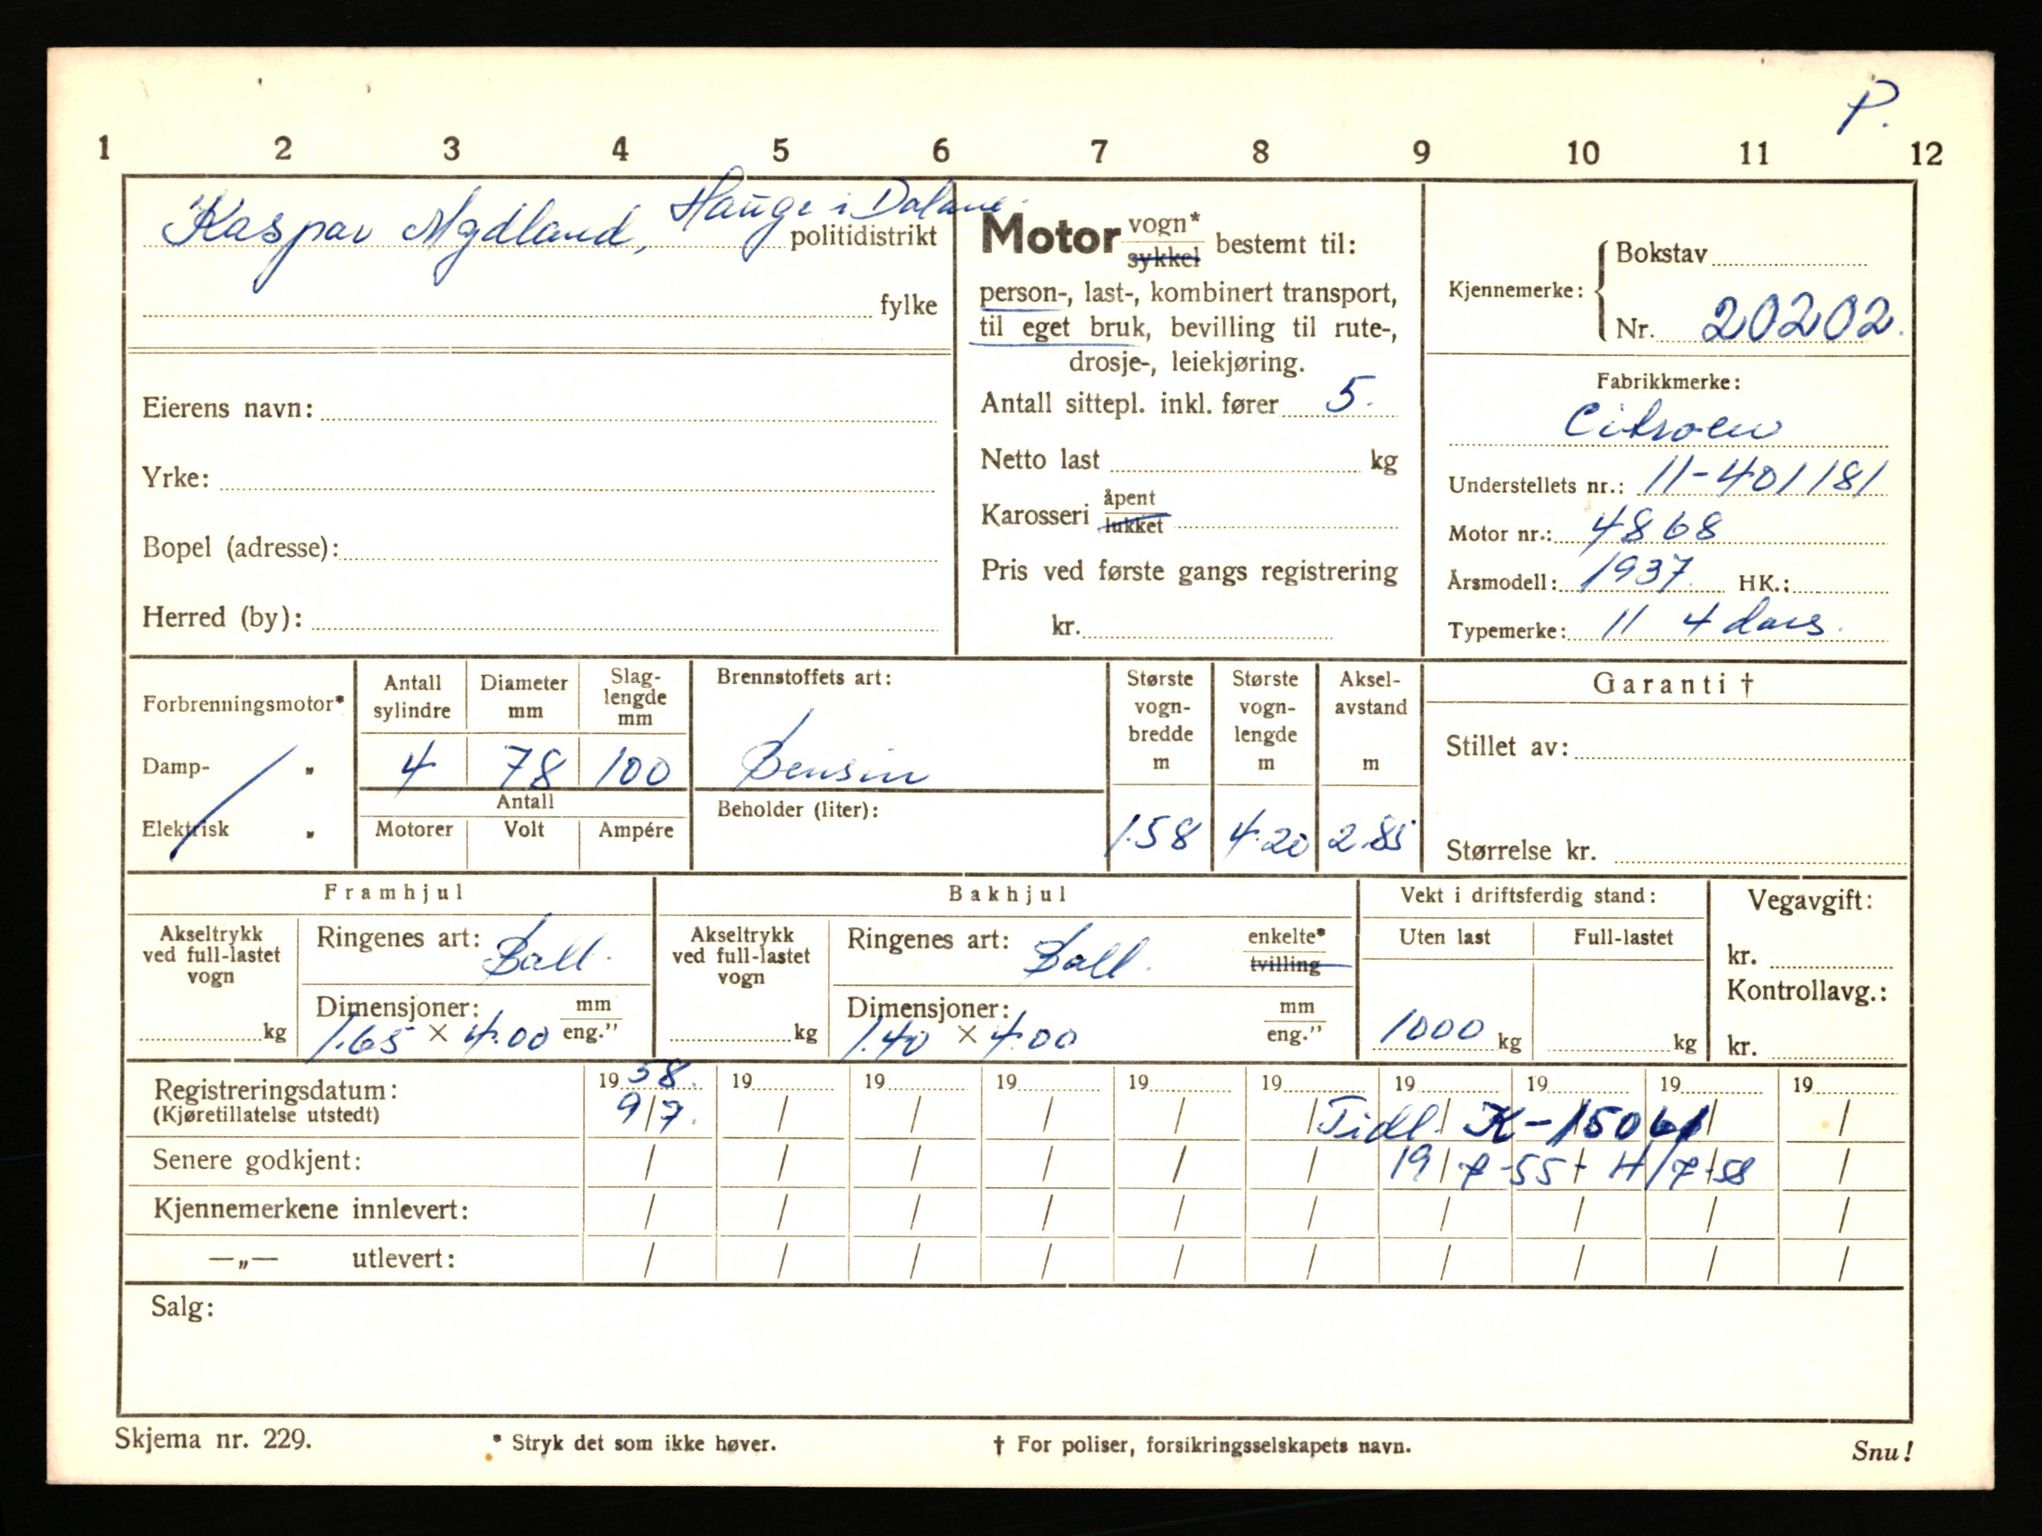 P.
1 2 3 4 5 6 7 8 9 10 11 12
Kaspar Mydland, Hauge i Dalane.
politidistrikt
fylke
Eierens navn:
Yrke:
Bopel (adresse):
Herred (by):
Motor vogn* sykkel bestemt til:
person-, last-, kombinert transport,
til eget bruk, bevilling til rute-,
drosje-, leiekjøring.
Antall sittepl. inkl. fører 5.
Netto last kg
Karosseri åpent lukket
Pris ved første gangs registrering
kr.
Kjennemerke: Bokstav
Nr. 20202.
Fabrikkmerke:
Citroen
Understellets nr.: 11-401181
Motor nr.: 4868
Årsmodell: 1937. HK.:
Typemerke: 11 4 dørs.
Forbrenningsmotor*
Damp- "
Elektrisk "
Antall sylindre
4
Diameter mm
78
Slag-lengde mm
100
Antall
Motorer Volt Ampére
Brennstoffets art:
Bensin
Beholder (liter):
Største vogn-bredde m
1.58
Største vogn-lengde m
4.20
Aksel-avstand m
2.85
Garanti †
Stillet av:
Størrelse kr.
Framhjul
Akseltrykk
ved full-lastet
vogn
kg
Ringenes art: Ball.
Dimensjoner: mm eng."
1.65 × 4.00
Bakhjul
Akseltrykk
ved full-lastet
vogn
kg
Ringenes art: Ball. enkelte* tvilling
Dimensjoner: mm eng."
1.40 × 4.00
Vekt i driftsferdig stand:
Uten last Full-lastet
1000 kg kg
Vegavgift:
kr.
Kontrollavg.:
kr.
Registreringsdatum: 1958. 19 19 19 19 19 19 19 19 19
(Kjøretillatelse utstedt) 9/7. / / / / / / / / /
Tidl. K-15061
Senere godkjent: / / / / / / / / / /
19/7-55 - 4/7-58
Kjennemerkene innlevert: / / / / / / / / / /
—„— utlevert: / / / / / / / / / /
Salg:
Skjema nr. 229. * Stryk det som ikke høver. † For poliser, forsikringsselskapets navn. Snu!